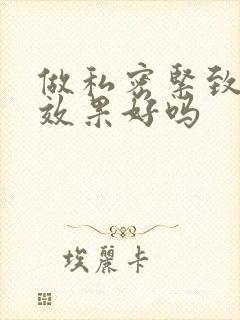 做私密緊致
效果好吗
埃麗卡